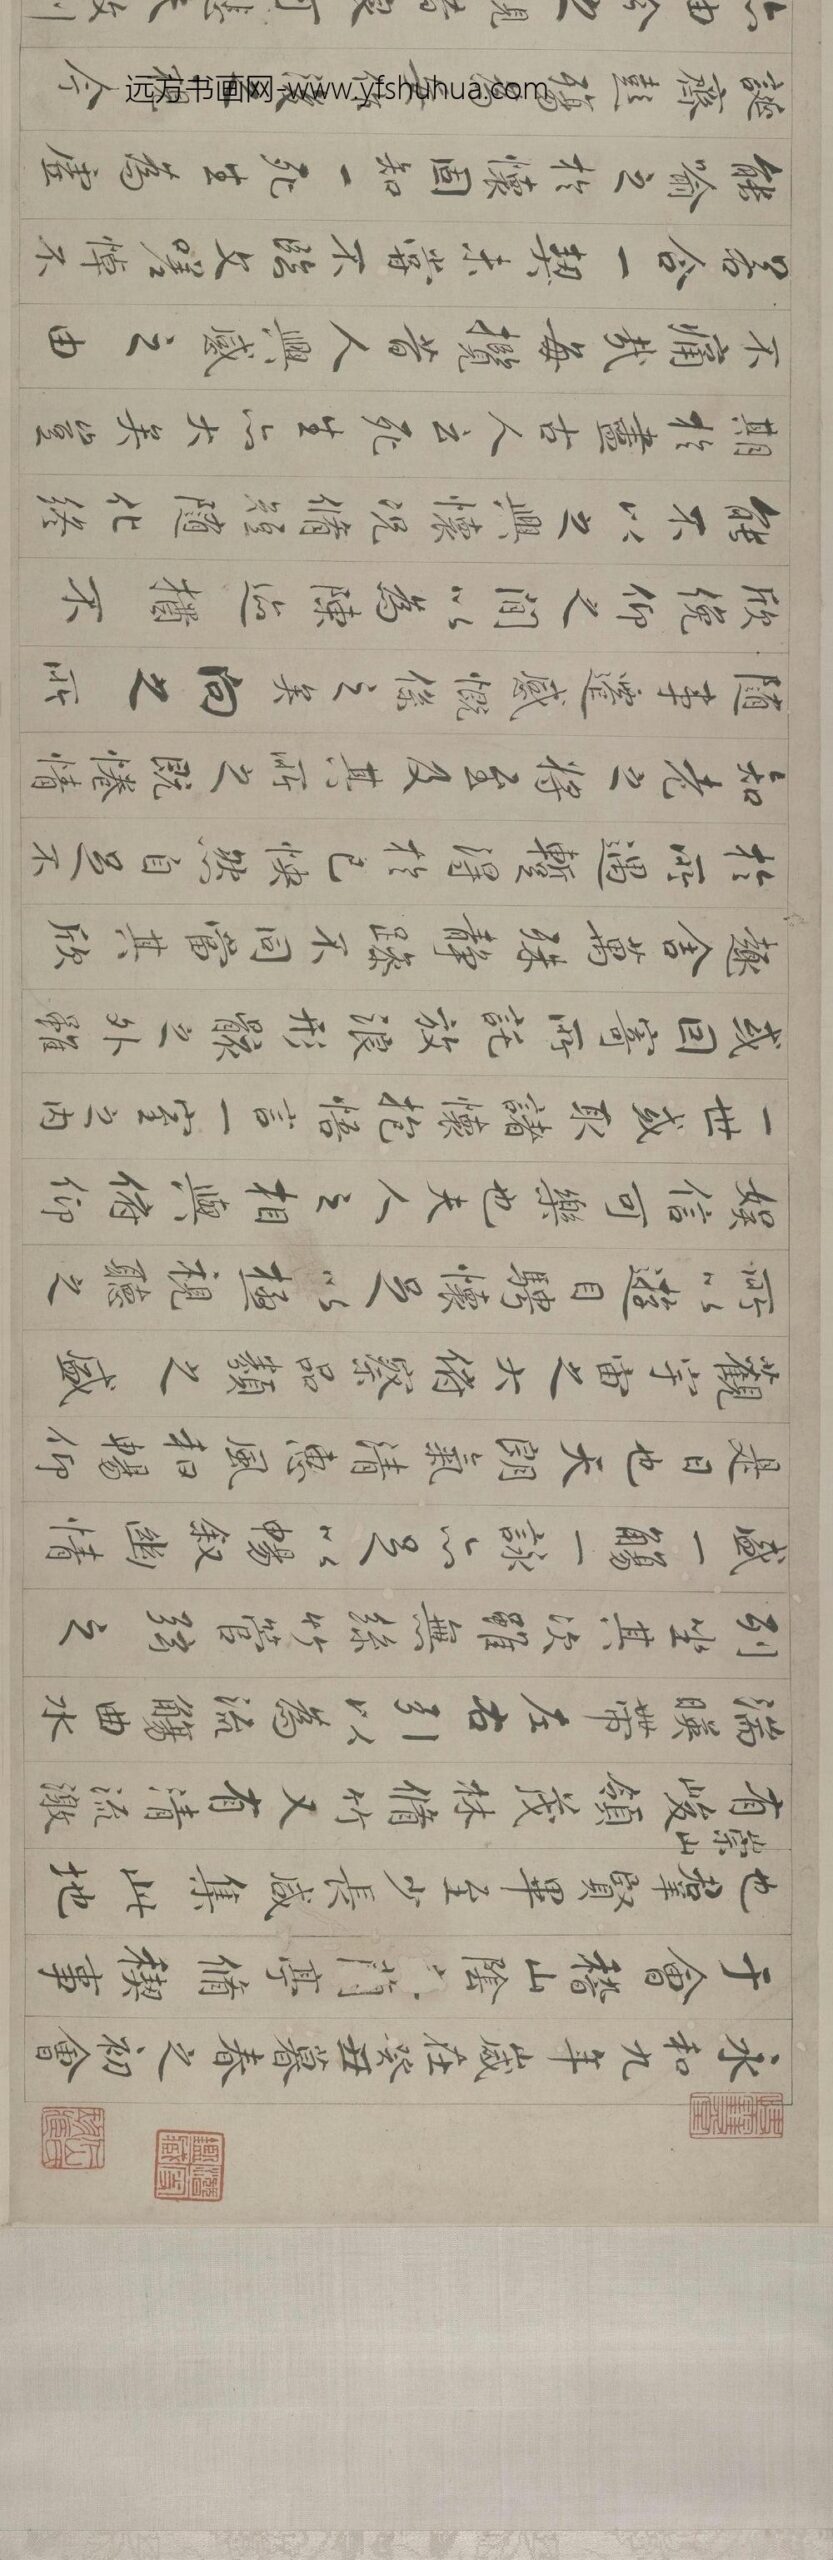 永和九年歲在癸丑暮春之初會
于會稽山陰之蘭亭脩稧事
也羣賢畢至少長咸集此地
有崇山峻領茂林脩竹又有清流激
湍暎帶左右引以為流觴曲水
列坐其次雖無絲竹管弦之
盛一觴一詠亦足以暢敘幽情
是日也天朗氣清惠風和暢仰
觀宇宙之大俯察品類之盛
所以遊目騁懷足以極視聽之
娛信可樂也夫人之相與俯仰
一世或取諸懷抱悟言一室之內
或因寄所託放浪形骸之外雖
趣舍萬殊靜躁不同當其欣
於所遇暫得於己快然自足不
知老之將至及其所之既惓情
隨事遷感慨係之矣向之所
欣俛仰之間以為陳迹猶不
能不以之興懷況脩短隨化終
期於盡古人云死生亦大矣豈
不痛哉每攬昔人興感之由
若合一契未嘗不臨文嗟悼不
能喻之於懷固知一死生為虛
誕齊彭殤為妄作後之視今
亦由今之視昔悲夫故列
远方书画网-www.yfshuhua.com